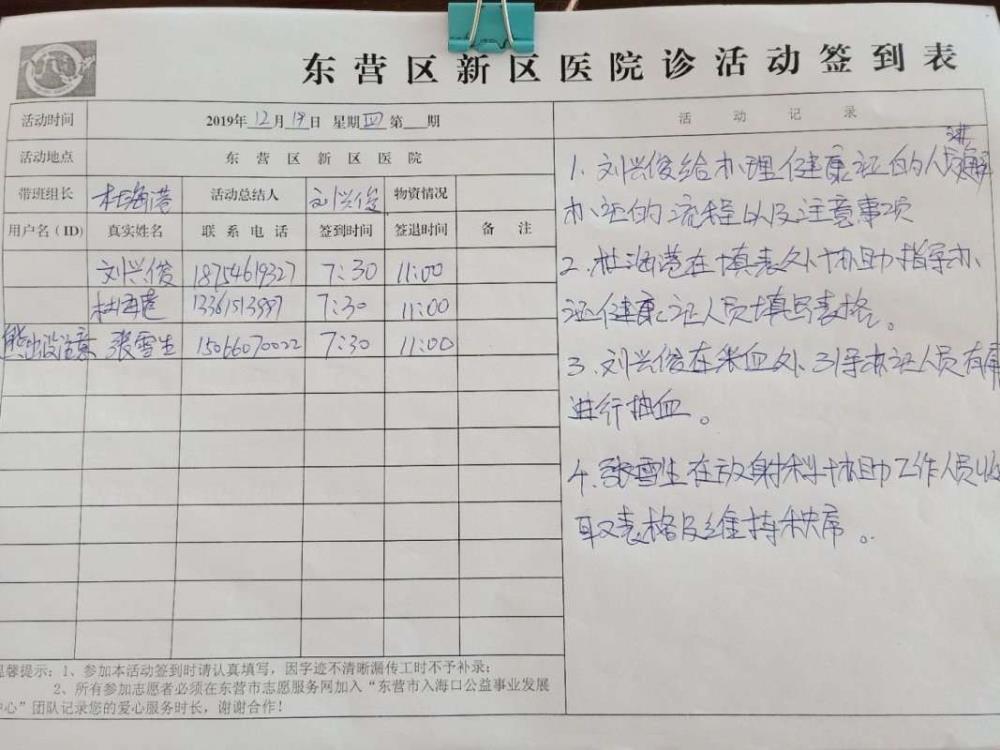 东营区新区医院诊活动签到表
活动时间 2019年12月19日 星期四 第__期
活动地点 东营区新区医院
带班组长 杜海港 活动总结人 刘兴俊 物资情况
用户名(ID) 真实姓名 联系电话 签到时间 签退时间 备注
刘兴俊 18754619327 7:30 11:00
杜海港 13361513997 7:30 11:00
熊出没注意 张雪生 15066070022 7:30 11:00
温馨提示:1、参加本活动签到时请认真填写,因字迹不清晰漏传工时不予补录;
2、所有参加志愿者必须在东营市志愿服务网加入“东营市入海口公益事业发展
中心”团队记录您的爱心服务时长,谢谢合作!
活动记录
1、刘兴俊给办理健康证的人员讲解
办证的流程以及注意事项
2、杜海港在填表处协助指导办
证健康证人员填写表格。
3、刘兴俊在采血处引导办证人员有序
进行抽血。
4、张雪生在放射科协助工作人员收
取表格及维持秩序。